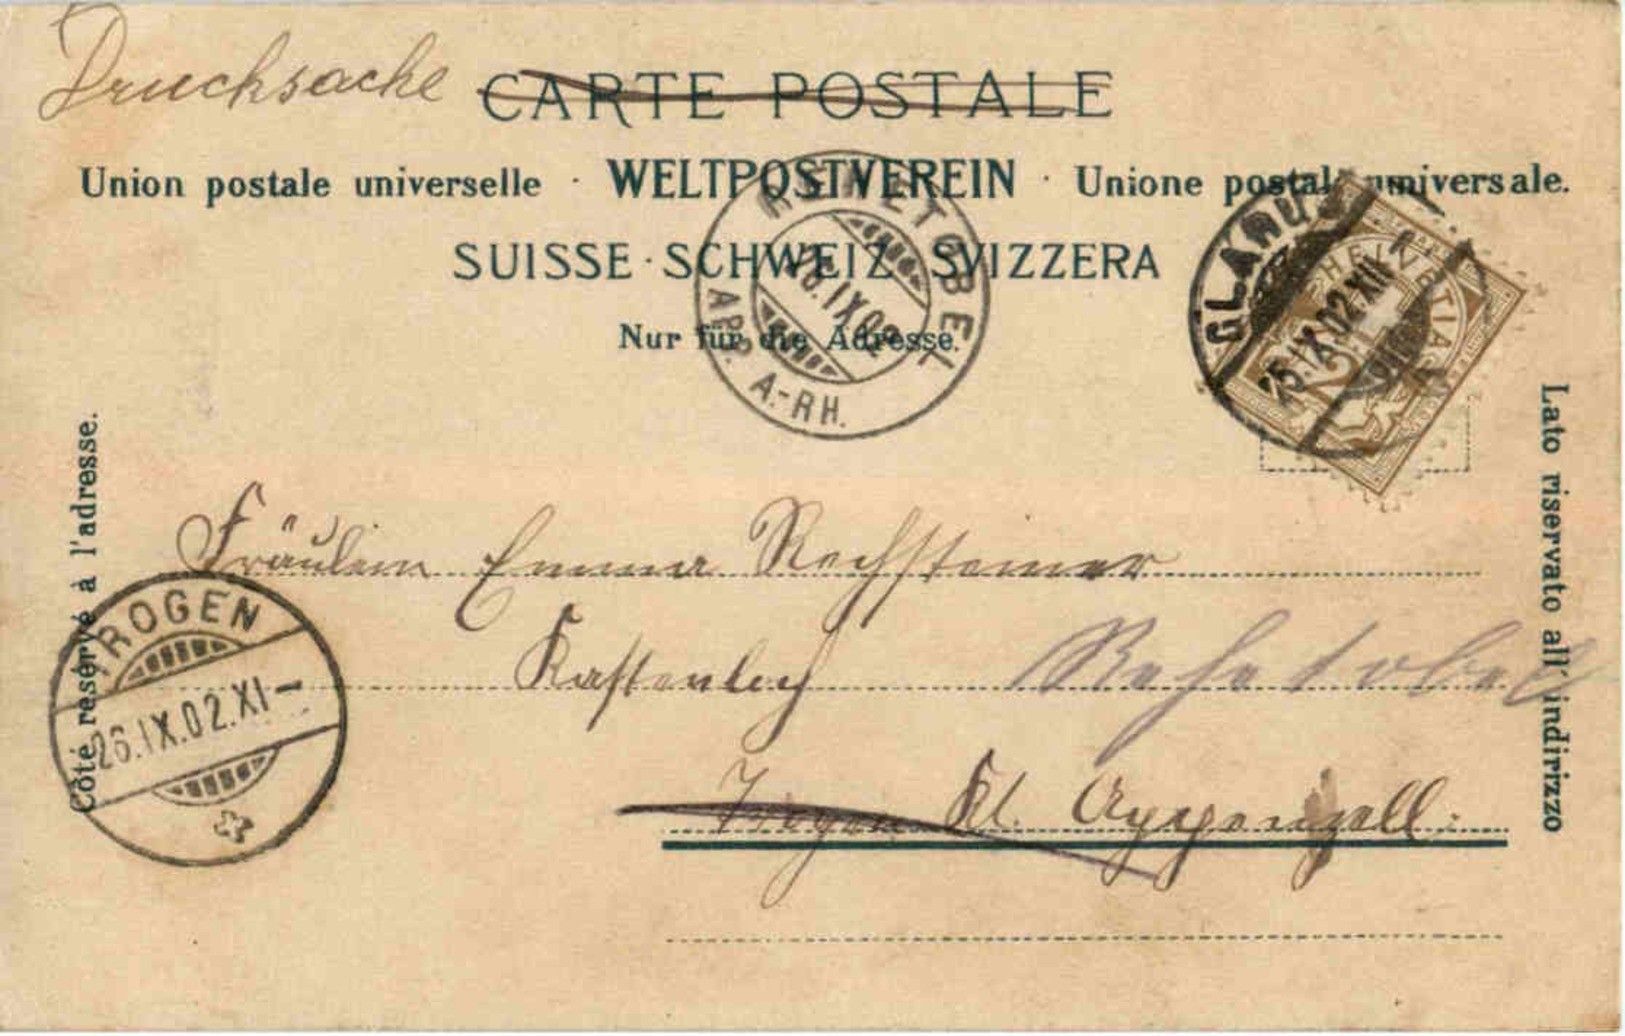 Drucksache
CARTE POSTALE
Union postale universelle · WELTPOSTVEREIN · Unione postale universale.
SUISSE · SCHWEIZ · SVIZZERA
Nur für die Adresse.
REHETOBEL
26.IX.02
APP. A.-RH.
GLARUS
25.IX.02.XII
HELVETIA
Lato riservato all' indirizzo
Côté reservé à l'adresse.
Fräulein Emma Rechsteiner
Kastenloch
Rehetobel
TROGEN
26.IX.02.XI-
Trogen Kt. Appenzell.